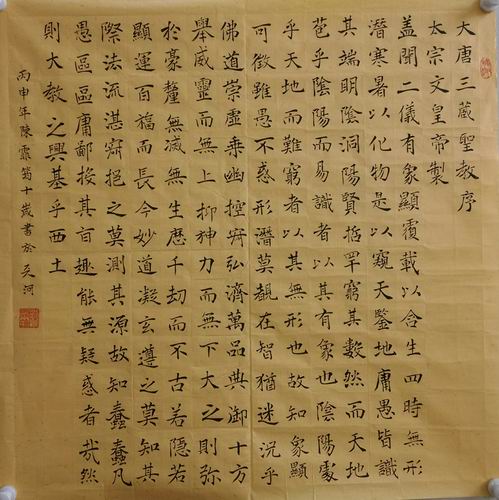 大唐三藏聖教序
太宗文皇帝製
蓋聞二儀有象顯覆載以含生四時無形
潛寒暑以化物是以窺天鑒地庸愚皆識
其端明陰洞陽賢哲罕窮其數然而天地
苞乎陰陽而易識者以其有象也陰陽處
乎天地而難窮者以其無形也故知象顯
可徵雖愚不惑形潛莫覩在智猶迷況乎
佛道崇虛乘幽控寂弘濟萬品典御十方
舉威靈而無上抑神力而無下大之則彌
於豪釐無滅無生歷千劫而不古若隱若
顯運百福而長今妙道凝玄遵之莫知其
際法流湛寂挹之莫測其源故知蠢蠢凡
愚區區庸鄙投其旨趣能無疑惑者哉然
則大教之興基乎西土
丙申年陳霏十歲書於河